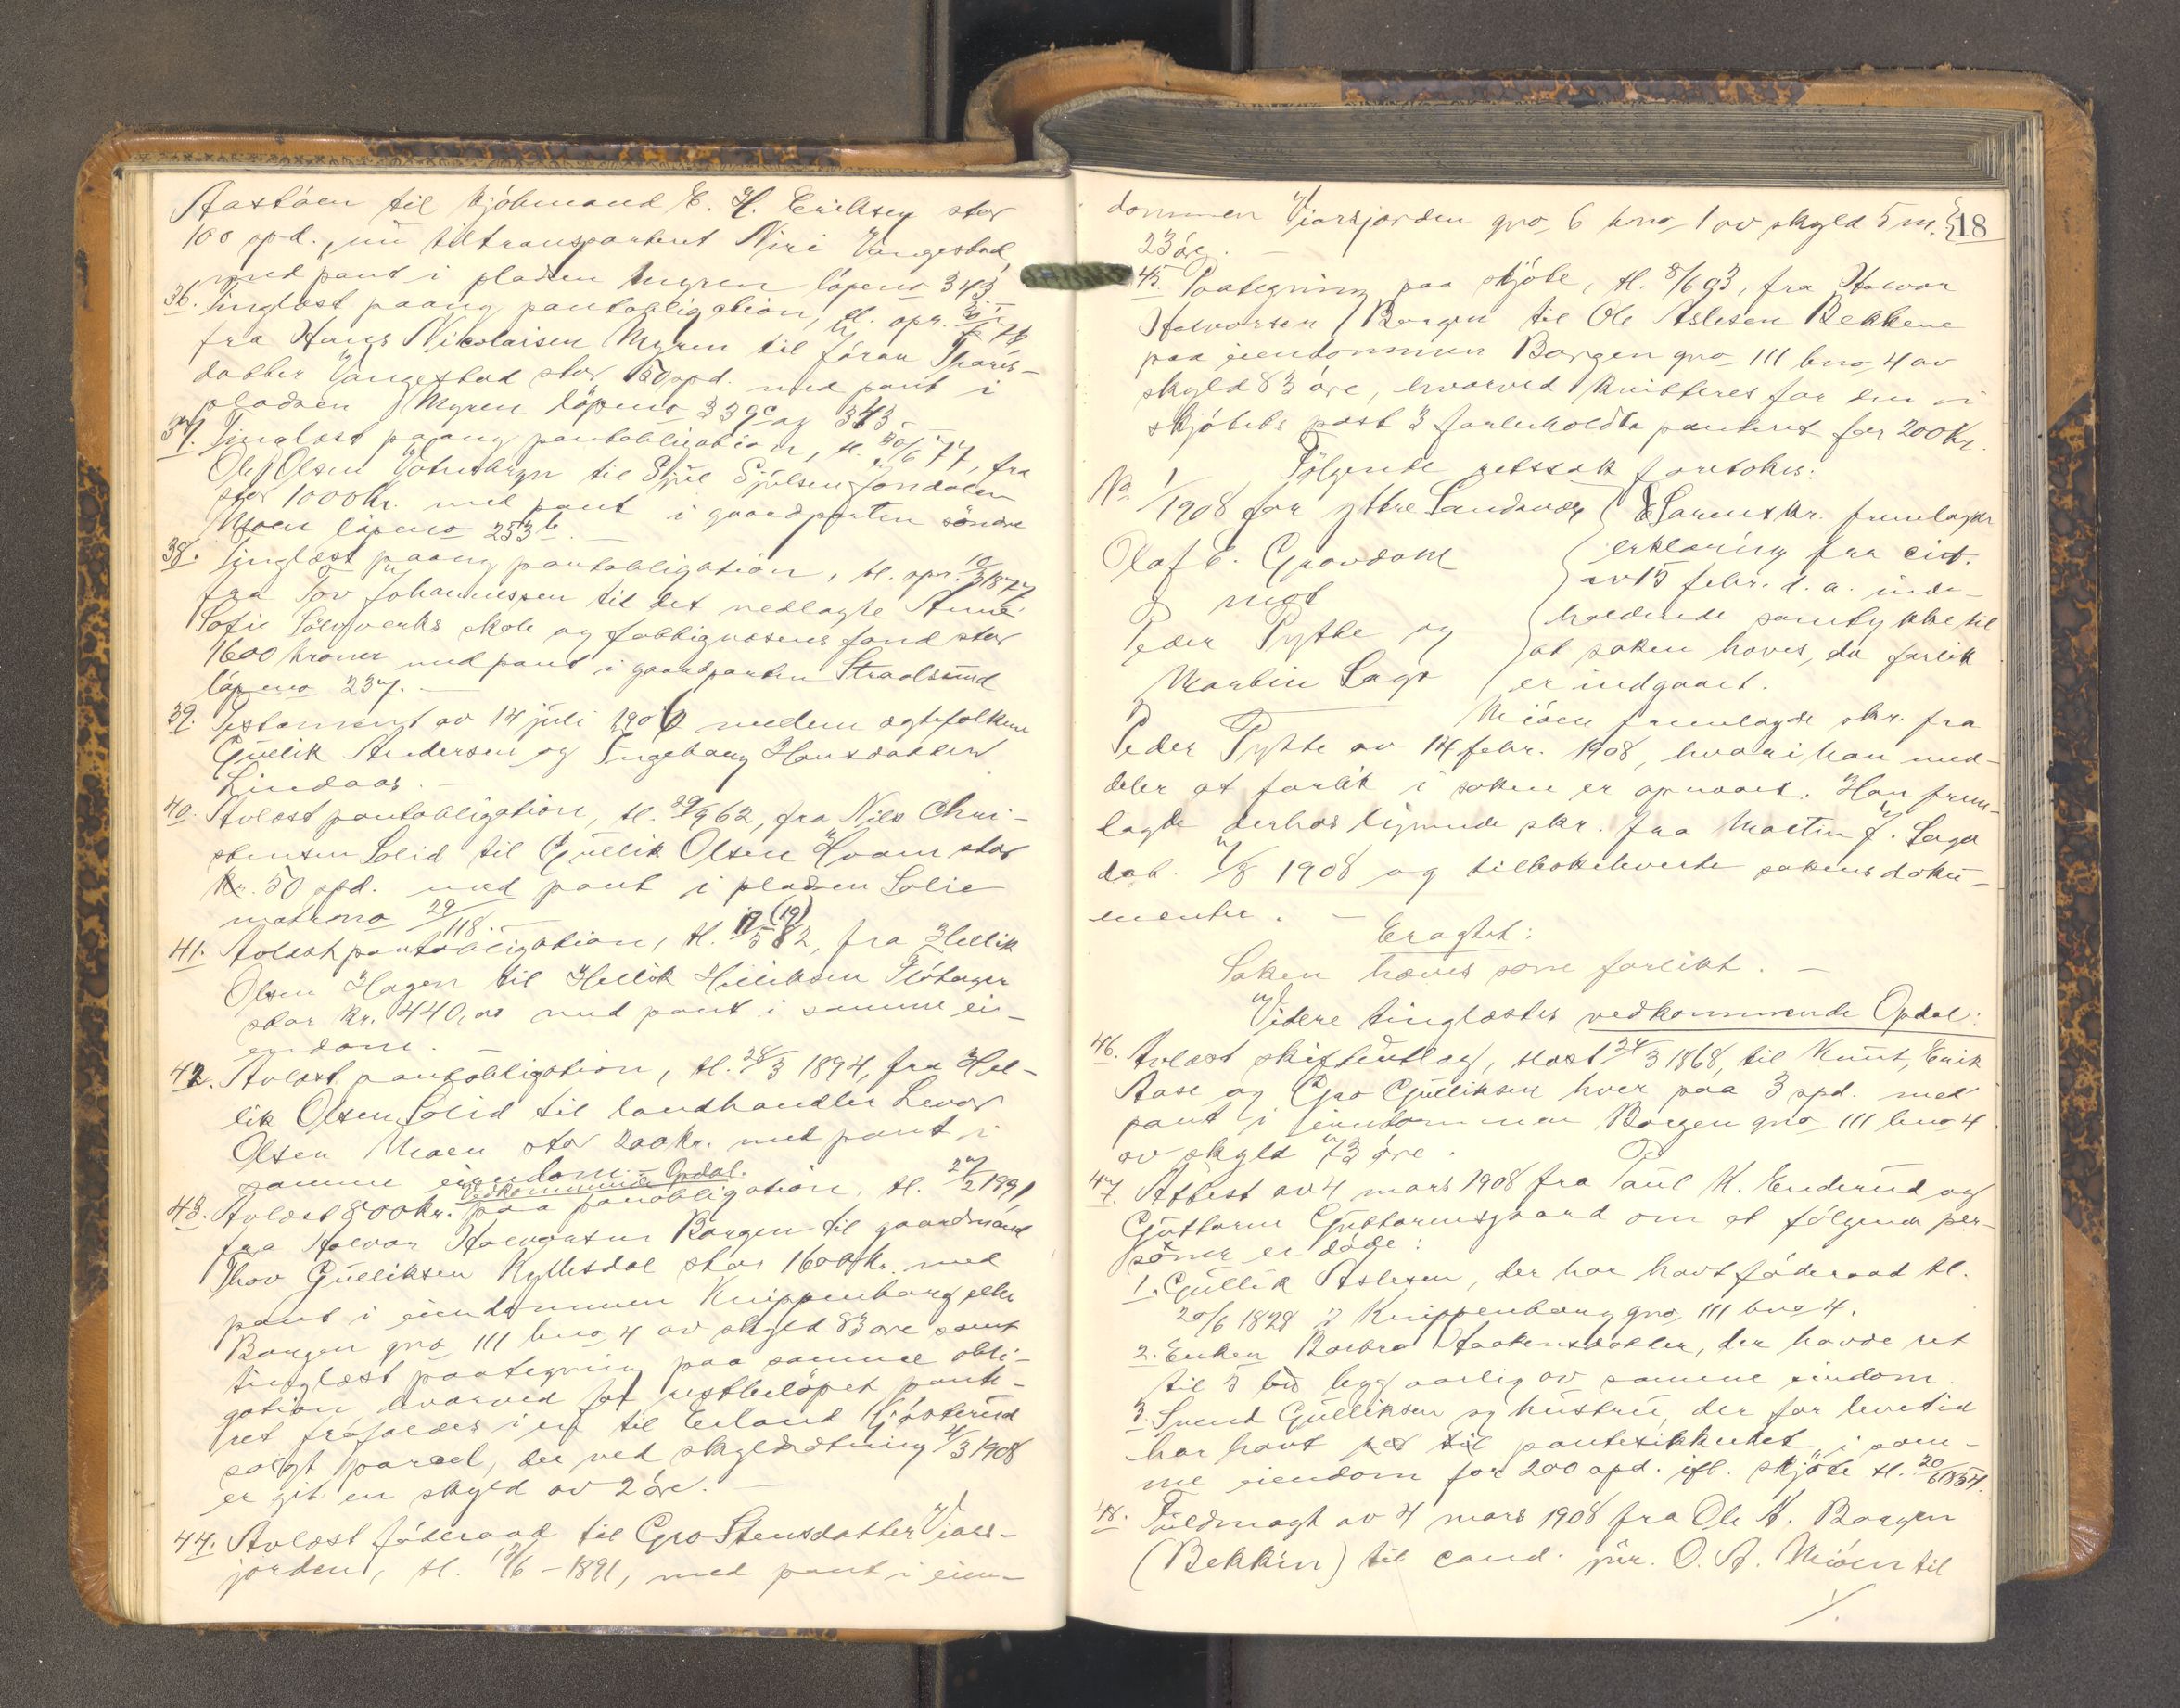 Aastöen til kjöbmand E. H. Eriksen stor
100 spd., nu tiltransporteret Niri Vangestad,
med pant i pladsen Myren löpeno 343.
36. Tinglæst paany pantobligation, tl. opr.
fra Hans Nikolaisen Myren til Jöran Thores-
datter Vangestad stor 150 spd. med pant i
pladsen Myren löpeno 339c og 343.
37. Tinglæst paany pantobligation, tl. 30/6 77, fra
Ole Olsen til Sjul Sjulsen Jondalen
stor 1000 kr. med pant i gaardparten söndre
Moen löpeno 253b. –
38. Tinglæst paany pantobligation, tl. opr. 10/3 1877
fra Tov Johannessen til det nedlagte Anne
Sofie Sölvverks skole og fattigvæsens fond stor
1600 kroner med pant i gaardparten Straalsund
löpeno 237. –
39. Testament av 14 juli 1906 mellem ægtefolkene
Gullik Andersen og Ingeborg Hansdatter
Lindaas. –
40. Avlæst pantobligation, tl. 29/9 62, fra Nils Chri-
stensen Solid til Gullik Olsen Hvam stor
kr. 50 spd. med pant i pladsen Solie
matrno 29/118. –
41. Avlæst pantobligation, tl. 17 (19)/5 82, fra Hellik
Olsen Hagen til Hellik Helliksen Flötager
stor kr. 440,00 med pant i samme ei-
endom.
42. Avlæst pantobligation, tl. 28/3 1894, fra Hel-
lik Olsen Solid til landhandler Levor
Olsen Moen stor 200 kr. med pant i
samme eiendom. –
Vedkommende Opdal.
43. Avlæst 800 kr. paa panobligation, tl. 27/2 1891
fra Halvor Halvorsen Borgen til gaardmand
Thov Gulliksen Kyllesdal stor 1600 kr. med
pant i eiendommen Knippenborg eller
Borgen gno 111 bno 4 av skyld 83 øre samt
tinglæst paategning paa samme obli-
gation hvorved for restbelöpet pante-
ret frafaldes i en til Erland Kjösterud
solgt parcel, der ved skylddeling 4/3 1908
er git en skyld av 2 öre. –
44. Avlæst föderaad til Gro Stensdatter Viors-
jorden, tl. 12/6 – 1891, med pant i eien-
dommen Viorsjorden gno 6 bno 1 av skyld 5 m. 18
23 öre. –
45. Paategning paa skjöte, tl. 8/6 93, fra Halvor
Halvorsen Borgen til Ole Aslesen Bekkene
paa eiendommen Borgen gno 111 bno 4 av
skyld 83 öre, hvorved kvitteres for den i
skjötets post 3 forbeholdte panteret for 200 Kr.
Fölgende retssak foretokes:
No 1/1908 for yttre Sandsvær
Olaf E. Gravdahl
mot
Peder Pytte og
Martin Saga
Sorenskr. fremlagde
erklæring fra cit.
av 15 febr. d. a. inde-
holdende samtykke til
at saken hæves, da forlik
er indgaaet.
Miöen fremlagde skr. fra
Peder Pytte av 14 febr. 1908, hvori han med-
deler at forlik i saken er opnaaet. Han frem-
lagde derhos lignende skr. fra Martin J. Saga
dat. 1908 og tilbakeleverte sakens doku-
menter. –
Eragtet:
Saken hæves som forlikt. –
Videre tinglæstes vedkommende Opdal:
46. Avlæst skifteutlæg, tlæst 24/3 1868, til Knut, Erik
Aase og Gro Gulliksen hver paa 3 spd. med
pant i eiendommen Borgen gno 111 bno 4
av skyld 73 öre.
47. Attest av 4 mars 1908 fra Paul K. Enderud og
Guttorm Guttormsgaard om at fölgende per-
soner er döde:
1. Gullik Aslesen, der har havt föderaad tl.
20/6 1828 i Knippenborg gno 111 bno 4.
2. Enken Barbra Haakensdatter, der havde ret
til 5 byg aarlig av samme eiendom.
3. Svend Gulliksen og hustru, der for levetid
har havt pantesikkerhet i sam-
me eiendom for 200 spd. ifl. skjöte tl. 20/6 1854.
48. Fuldmagt av 4 mars 1908 fra Ole A. Borgen
(Bekkin) til cand. jur. O. A. Miöen til